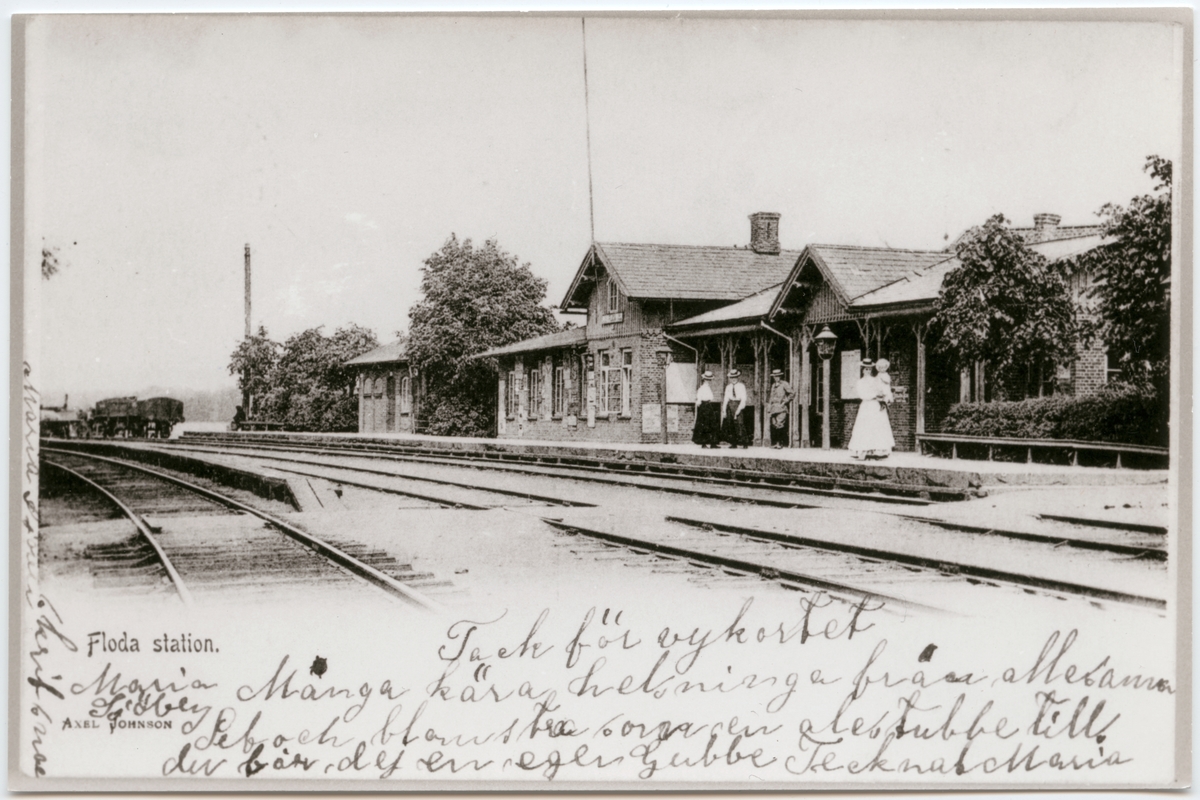 Floda station.
AXEL JOHNSON
Tack för vykortet
Många kära helsninga från allesamma
Leb och blomstra som en alestubbe till
du bär dej en egen Gubbe Tecknas Maria
Maria